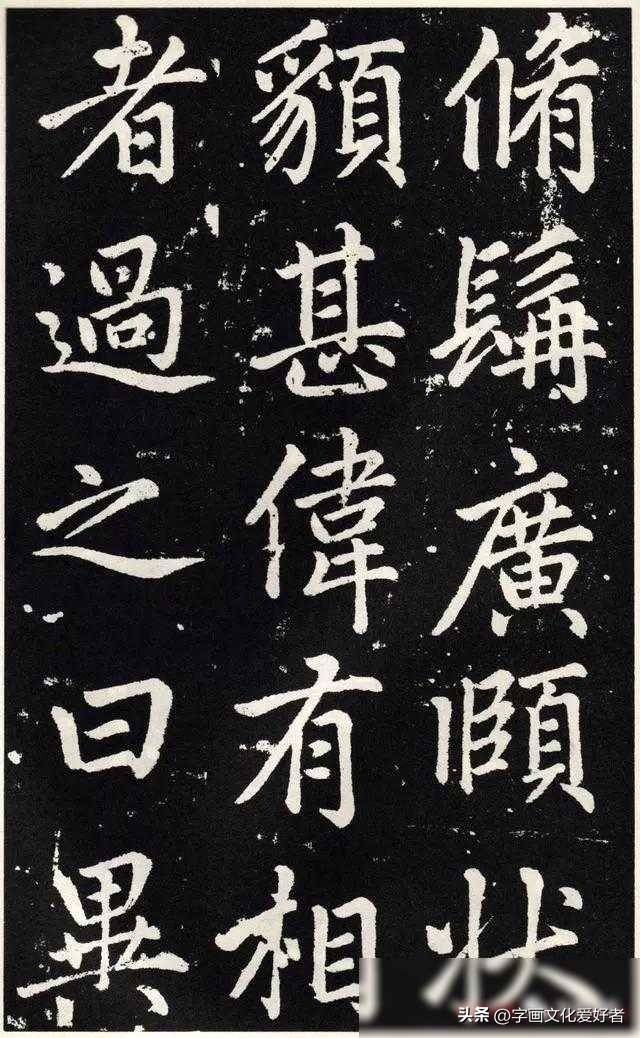 脩髯廣頤状
貌甚偉有相
者過之曰異
头条 @字画文化爱好者